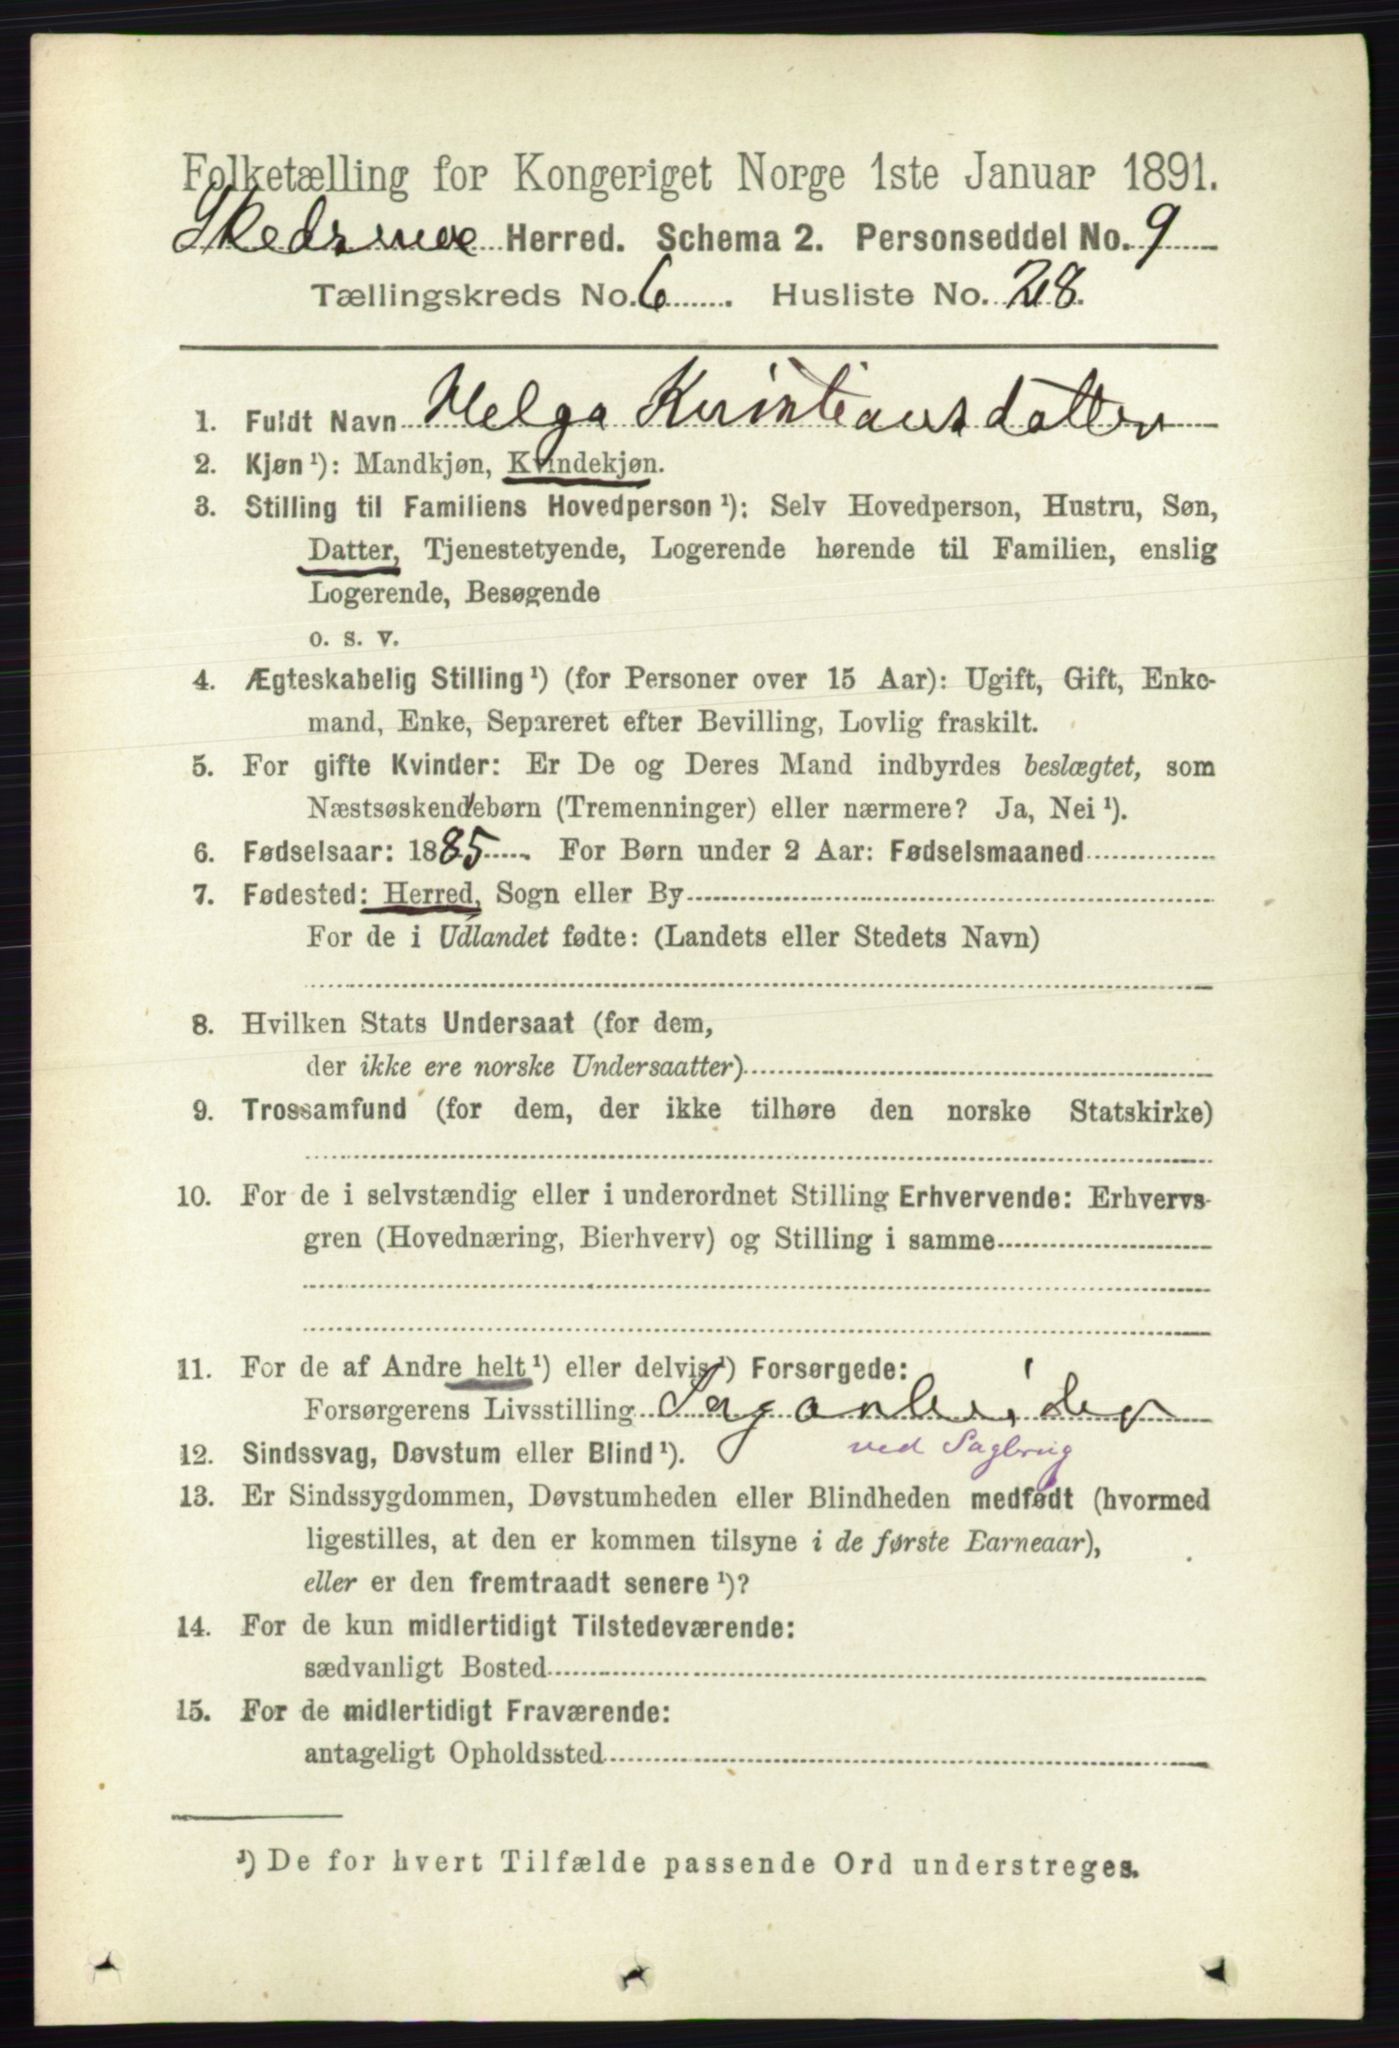 Folketælling for Kongeriget Norge 1ste Januar 1891.
Skedsmoe Herred. Schema 2. Personseddel No. 9
Tællingskreds No. 6 . Husliste No. 28.
1. Fuldt Navn Helga Kristiansdatter
2. Kjøn ¹): Mandkjøn, Kvindekjøn.
3. Stilling til Familiens Hovedperson ¹): Selv Hovedperson, Hustru, Søn,
Datter, Tjenestetyende, Logerende hørende til Familien, enslig
Logerende, Besøgende
o. s. v.
4. Ægteskabelig Stilling ¹) (for Personer over 15 Aar): Ugift, Gift, Enke-
mand, Enke, Separeret efter Bevilling, Lovlig fraskilt.
5. For gifte Kvinder: Er De og Deres Mand indbyrdes beslægtet, som
Næstsøskendebørn (Tremenninger) eller nærmere? Ja, Nei ¹).
6. Fødselsaar: 1885 . For Børn under 2 Aar: Fødselsmaaned
7. Fødested: Herred, Sogn eller By
For de i Udlandet fødte: (Landets eller Stedets Navn)
8. Hvilken Stats Undersaat (for dem,
der ikke ere norske Undersaatter)
9. Trossamfund (for dem, der ikke tilhøre den norske Statskirke)
10. For de i selvstændig eller i underordnet Stilling Erhvervende: Erhvervs-
gren (Hovednæring, Bierhverv) og Stilling i samme
11. For de af Andre helt ¹) eller delvis ¹) Forsørgede:
Forsørgerens Livsstilling Sagarbeider
ved Sagbrug
12. Sindssvag, Døvstum eller Blind ¹).
13. Er Sindssygdommen, Døvstumheden eller Blindheden medfødt (hvormed
ligestilles, at den er kommen tilsyne i de første Barneaar),
eller er den fremtraadt senere ¹)?
14. For de kun midlertidigt Tilstedeværende:
sædvanligt Bosted
15. For de midlertidigt Fraværende:
antageligt Opholdssted
¹) De for hvert Tilfælde passende Ord understreges.